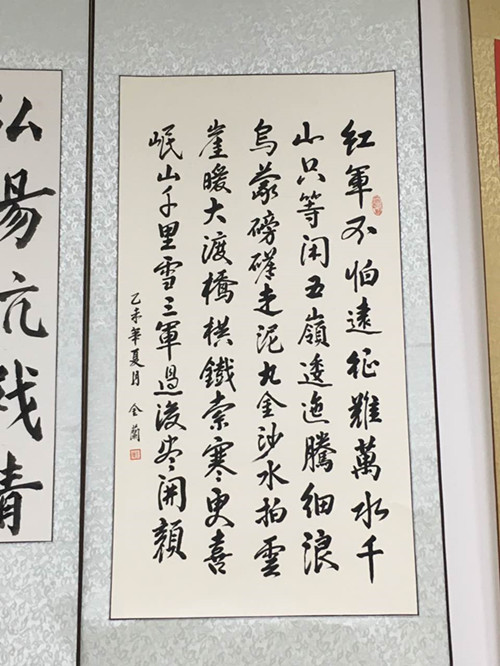 红軍不怕遠征難萬水千
山只等闲五嶺逶迤騰细浪
烏蒙磅礴走泥丸金沙水拍雲
崖暖大渡橋横鐵索寒更喜
岷山千里雪三軍過後尽開顔
乙未年夏月 全蘭
弘揚抗战精